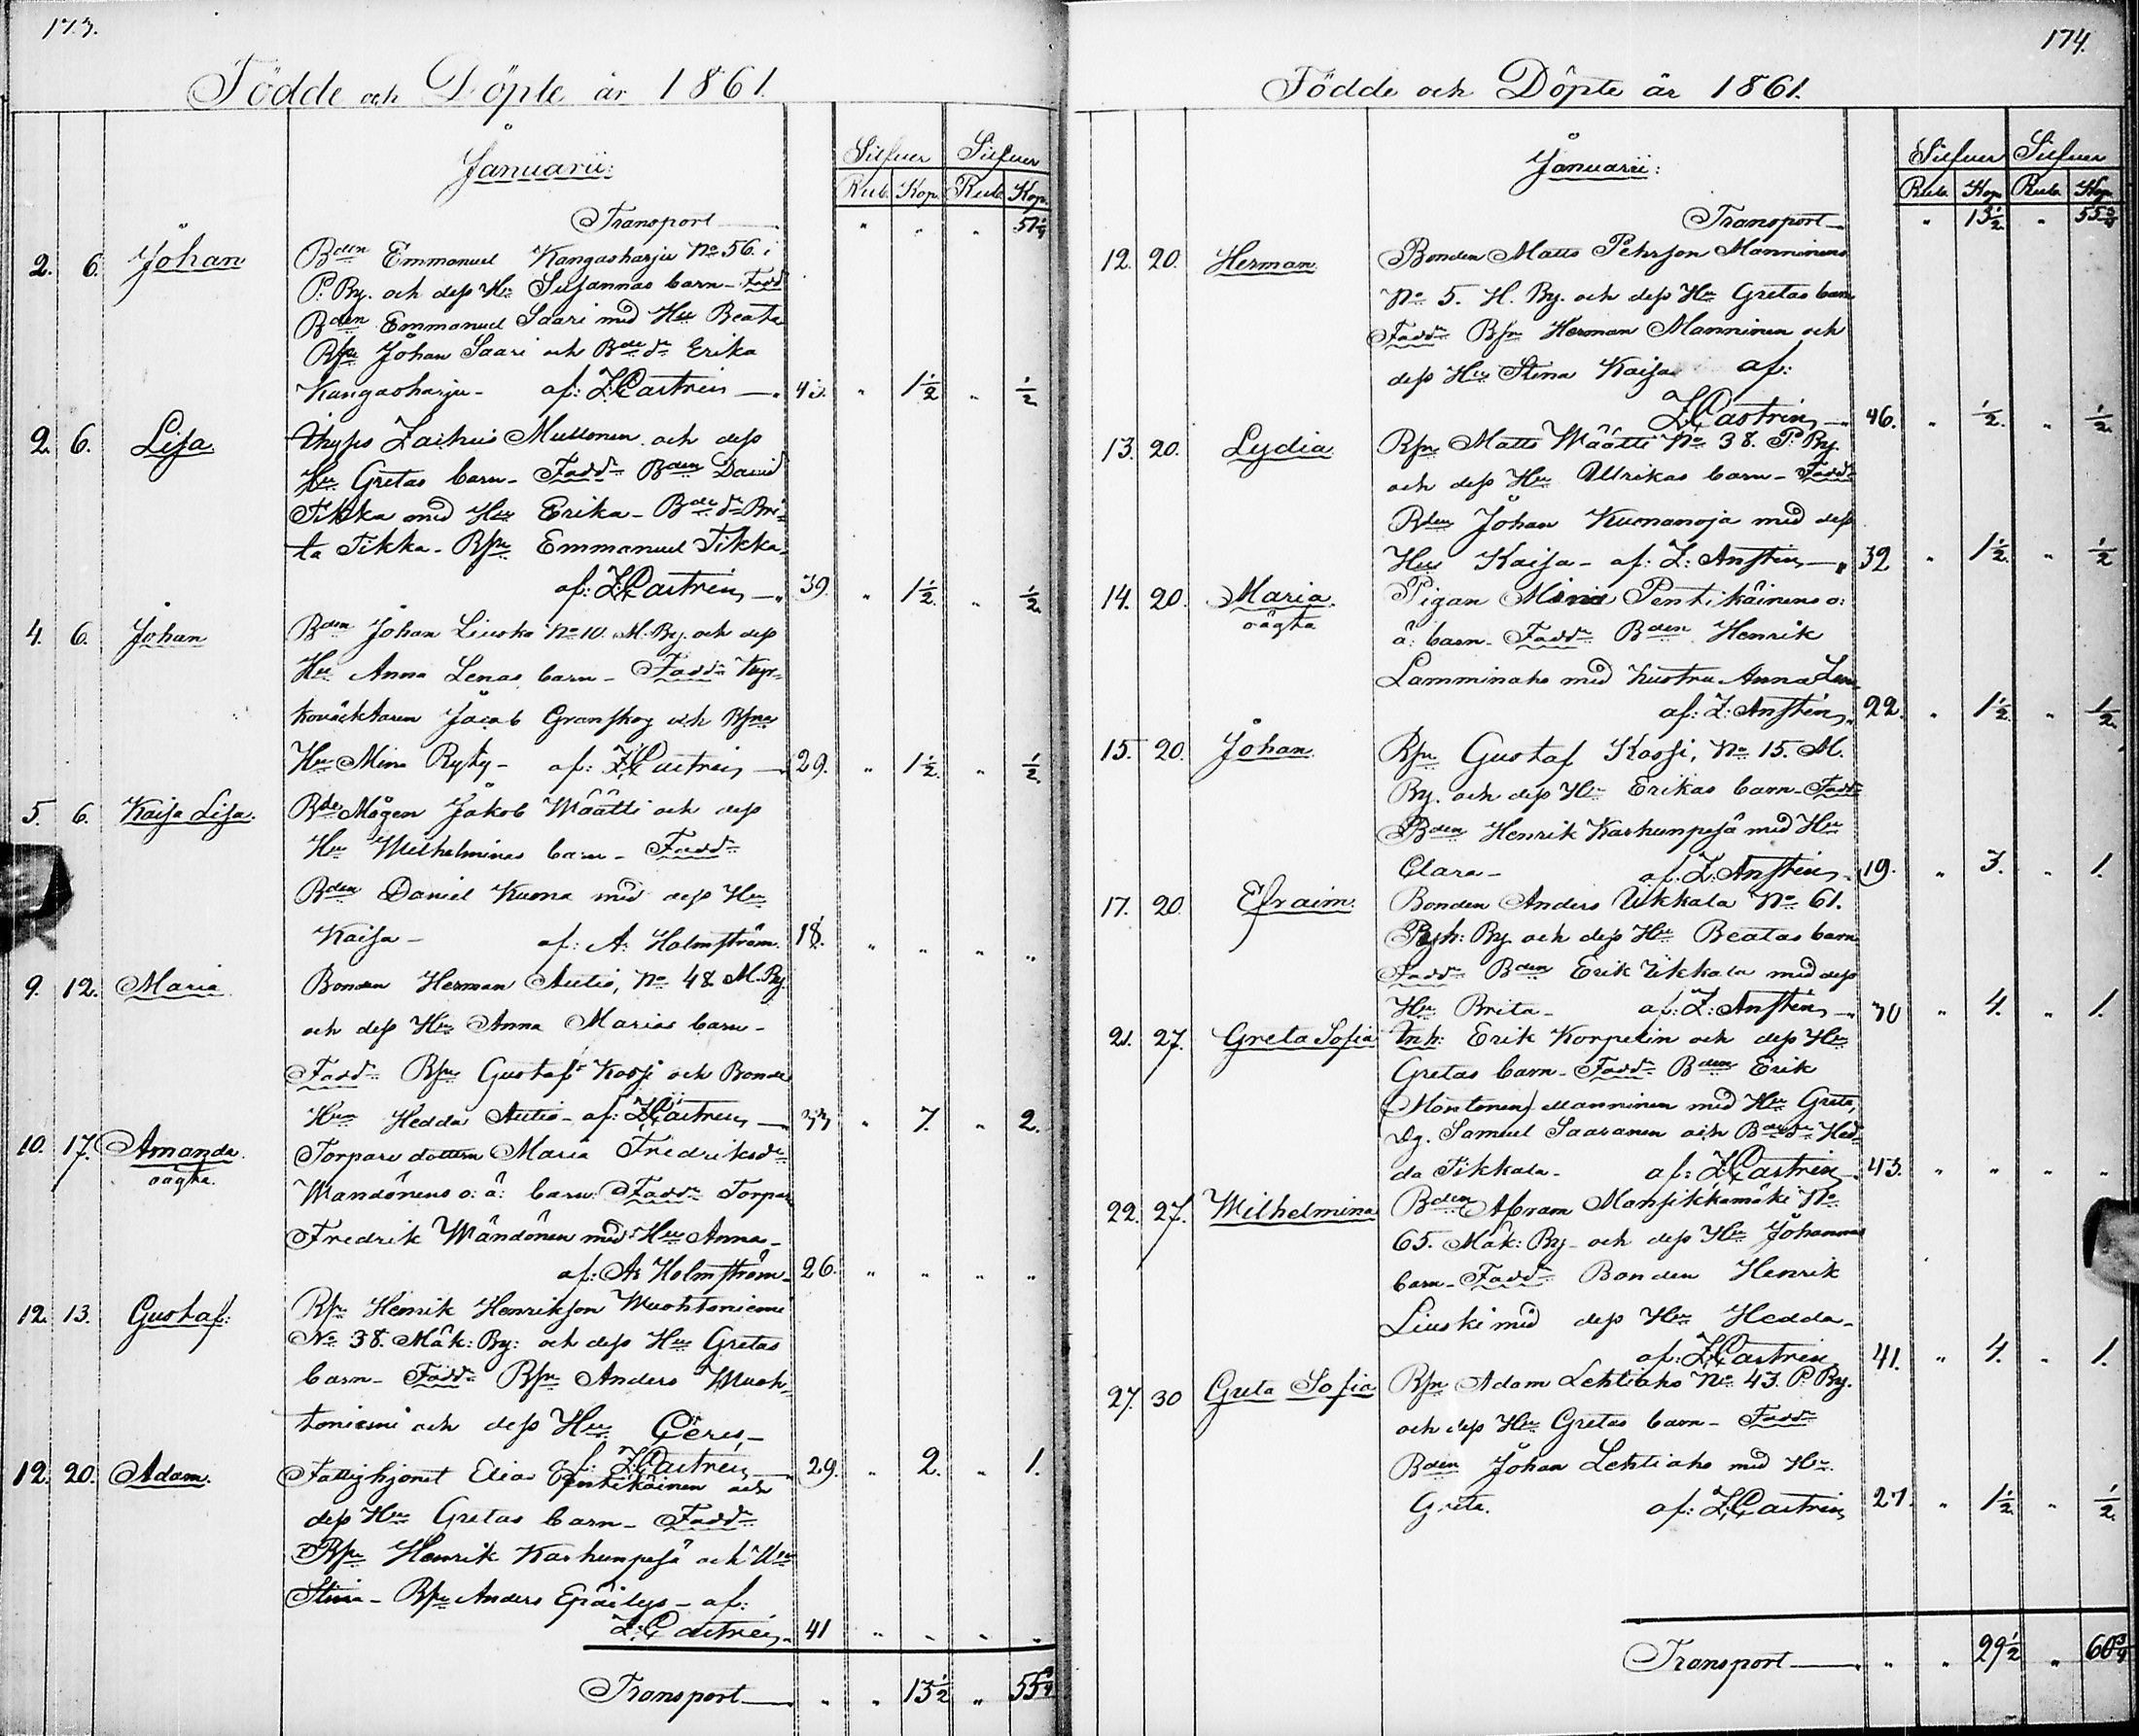 173.
Födde och Döpte år 1861.
Januarii:
Silfver Silfver
Rub. Kop. Rub. Kop.
Transport — " " " 51 1/4
2. 6. Johan Bden Emmanuel Kangasharju No 56 i
P: By. och dess Hu Susannas barn - Fadd
Bden Emmanuel Saari med Hu Beata
Bsn Johan Saari och Bde dr Erika
Kangasharju - af: Z.Castrén — 43. " 1 1/2 " 1/2
2. 6. Lisa Inhyses Zachris Mustonen och dess
Hu Gretas barn - Faddr Bden David
Tikka med Hu Erika - Bde dr Bri-
ta Tikka - Bsn Emmanuel Tikka.
af: Z.Castrén — 39. " 1 1/2. " 1/2.
4. 6. Johan Bden Johan Liuska No 10. M. By. och dess
Hu Anna Lenas barn - Faddr Kyr-
koväcktaren Jacob Granskog och Bsns
Hu Mina Ryky - af: Z.Castrén — 29. " 1 1/2. " 1/2.
5. 6. Kaisa Lisa. Bde Mågen Jakob Määtti och dess
Hu Wilhelminas barn - Faddr
Bden Daniel Kuona med dess Hu
Kaisa - af: A: Holmström. 18. " " " "
9. 12. Maria Bonden Herman Autio, No 48 M. By
och dess Hu Anna Marias barn -
Faddr Bsn Gustaf Kossi och Bonde
Hu Hedda Autio - af: Z.Castrén — 33 " 7. " 2.
10. 17. Amanda. Torpare dottern Maria Fredriksdr
oägta.
Wändönens o: ä: barn. Faddr Torpar
Fredrik Wändönen med Hu Anna -
af: A: Holmström - 26. " " " "
12. 13. Gustaf. Bsn Henrik Henriksson Muohtoniemi
No 38. Mäk: By: och dess Hu Gretas
barn - Faddr Bsn Anders Muoh-
toniemi och dess Hu Ceres -
af: Z.Castrén — 29. " 2. " 1.
12. 20. Adam. Fattighjonet Elias Pentikäinen och
dess Hu Gretas barn - Faddr
Bsn Henrik Karhunpesä och Hu
Stina - Bsn Anders Epäilys - af:
Z.Castrén - 41 " " " "
Transport — " " 13 1/2 " 55 3/4
174.
Födde och Döpte år 1861.
Januarii:
Silfver Silfver
Rub. Kop. Rub. Kop.
Transport — " 13 1/2. " 55 3/4
12. 20. Herman Bonden Matts Pehrson Manninens
No 5. H. By. och dess Hu Gretas barn
Faddr Bsn Herman Manninen och
dess Hu Stina Kaisa af:
Z.Castrén — 46. " 1/2. " 1/2.
13. 20. Lydia Bsn Matts Määtti No 38. P. By.
och dess Hu Ulrikas barn - Faddr
Bden Johan Kuonanoja med dess
Hu Kaisa - af: Z: Anstén — 32 " 1 1/2. " 1/2
14. 20. Maria. Pigan Mina Pentikäinens o:
oägta
ä: barn - Faddr Bden Henrik
Lamminaho med hustru Anna Lena
af: Z: Anstén, 22. " 1 1/2. " 1/2.
15. 20. Johan Bsn Gustaf Kossi, No 15. M.
By. och dess Hu Erikas barn - Faddr
Bden Henrik Karhunpesä med Hu
Clara - af. Z. Anstén - 19. " 3. " 1.
17. 20. Efraim. Bonden Anders Ukkala No 61.
Pyh: By och dess Hu Beatas barn
Faddr Bden Erik Ukkala med dess
Hu Brita - af: Z: Anstén - 30 " 4. " 1.
21. 27. Greta Sofia Inh: Erik Korpelin och dess Hu
Gretas barn - Faddr Bden Erik
(Mantonen) Manninen med Hu Greta,
Dg. Samuel Saaranen och Bde dr Hed-
da Tikkala - af: Z.Castrén - 43. " " " "
22. 27. Wilhelmina Bden Abram Mansikkamäki No
65. Mäk: By - och dess Hu Johannas
barn - Faddr Bonden Henrik
Liuski med dess Hu Hedda -
af: Z.Castrén 41. " 4. " 1.
27. 30 Greta Sofia Bsn Adam Lehtiaho No 43. P. By.
och dess Hu Gretas barn - Faddr
Bden Johan Lehtiaho med Hu
Greta. af: Z.Castrén 27. " 1 1/2. " 1/2.
Transport — " " 29 1/2 " 60 3/4